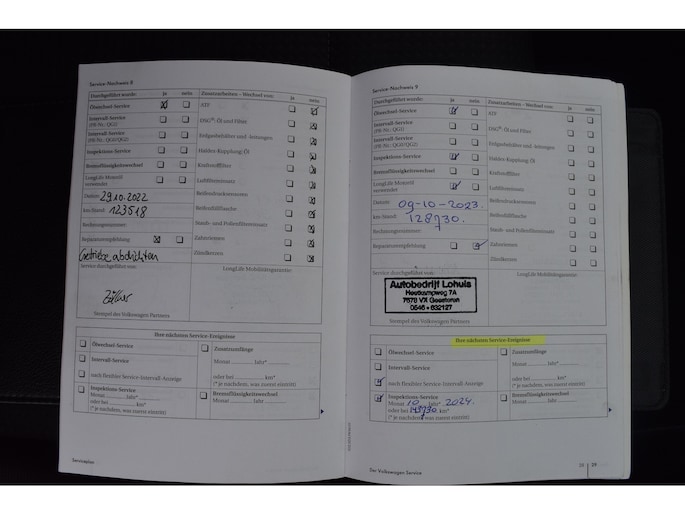 Service-Nachweis 8
Durchgeführt wurde: ja nein
Ölwechsel-Service
Intervall-Service
(PR-Nr.: QG1)
Intervall-Service
(PR-Nr.: QG0/QG2)
Inspektions-Service
Bremsflüssigkeitswechsel
LongLife Motoröl
verwendet
Datum: 29.10.2022
km-Stand: 123518
Rechnungsnummer:
Reparaturempfehlung
Getriebe abdichten
Service durchgeführt von:
Stempel des Volkswagen Partners
Zusatzarbeiten - Wechsel von: ja nein
ATF
DSG®-Öl und Filter
Erdgasbehälter und -leitungen
Haldex-Kupplung-Öl
Kraftstofffilter
Luftfiltereinsatz
Reifendrucksensoren
Reifenfüllflasche
Staub- und Pollenfiltereinsatz
Zahnriemen
Zündkerzen
LongLife Mobilitätsgarantie
Ihre nächsten Service-Ereignisse
Ölwechsel-Service
Intervall-Service
nach flexibler Service-Intervall-Anzeige
Inspektions-Service
Monat Jahr*
oder bei km*
(* je nachdem, was zuerst eintritt)
Zusatzumfänge
Monat Jahr*
oder bei km*
(* je nachdem, was zuerst eintritt)
Bremsflüssigkeitswechsel
Monat Jahr
Serviceplan
Service-Nachweis 9
Durchgeführt wurde: ja nein
Ölwechsel-Service
Intervall-Service
(PR-Nr.: QG1)
Intervall-Service
(PR-Nr.: QG0/QG2)
Inspektions-Service
Bremsflüssigkeitswechsel
LongLife Motoröl
verwendet
Datum: 09-10-2023.
km-Stand: 128730.
Rechnungsnummer:
Reparaturempfehlung
Service durchgeführt von:
Autobedrijf Lohuis
7678 VX Geesteren
0546 - 632127
Stempel des Volkswagen Partners
Zusatzarbeiten - Wechsel von: ja nein
ATF
DSG®-Öl und Filter
Erdgasbehälter und -leitungen
Haldex-Kupplung-Öl
Kraftstofffilter
Luftfiltereinsatz
Reifendrucksensoren
Reifenfüllflasche
Staub- und Pollenfiltereinsatz
Zahnriemen
Zündkerzen
LongLife Mobilitätsgarantie
Ihre nächsten Service-Ereignisse
Ölwechsel-Service
Intervall-Service
nach flexibler Service-Intervall-Anzeige
Inspektions-Service
Monat 10 Jahr* 2024.
oder bei 143730 km*
(* je nachdem, was zuerst eintritt)
Zusatzumfänge
Monat Jahr*
oder bei km*
(* je nachdem, was zuerst eintritt)
Bremsflüssigkeitswechsel
Monat Jahr
Der Volkswagen Service
39